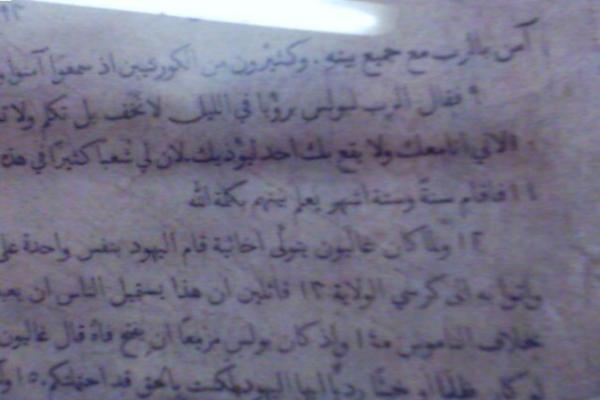 آمن بالرب مع جميع بيته. وكثيرون من الكورنثيين اذ سمعوا آمنوا
٩ فقال الرب لبولس برؤيا في الليل لا تخف بل تكلم ولا
١٠ لاني انا معك ولا يقع بك احد ليؤذيك لان لي شعبا كثيرا في هذه
١١ فاقام سنة وستة اشهر يعلم بينهم بكلمة الله
١٢ ولما كان غاليون يتولى اخائية قام اليهود بنفس واحدة على
واتوا به الى كرسي الولاية ١٣ قائلين ان هذا يستميل الناس ان
بخلاف الناموس ١٤ واذ كان بولس مزمعا ان يفتح فاه قال غاليون
لو كان ظلما او خبثا رديا ايها اليهود لكنت بالحق قد احتملتكم. ١٥